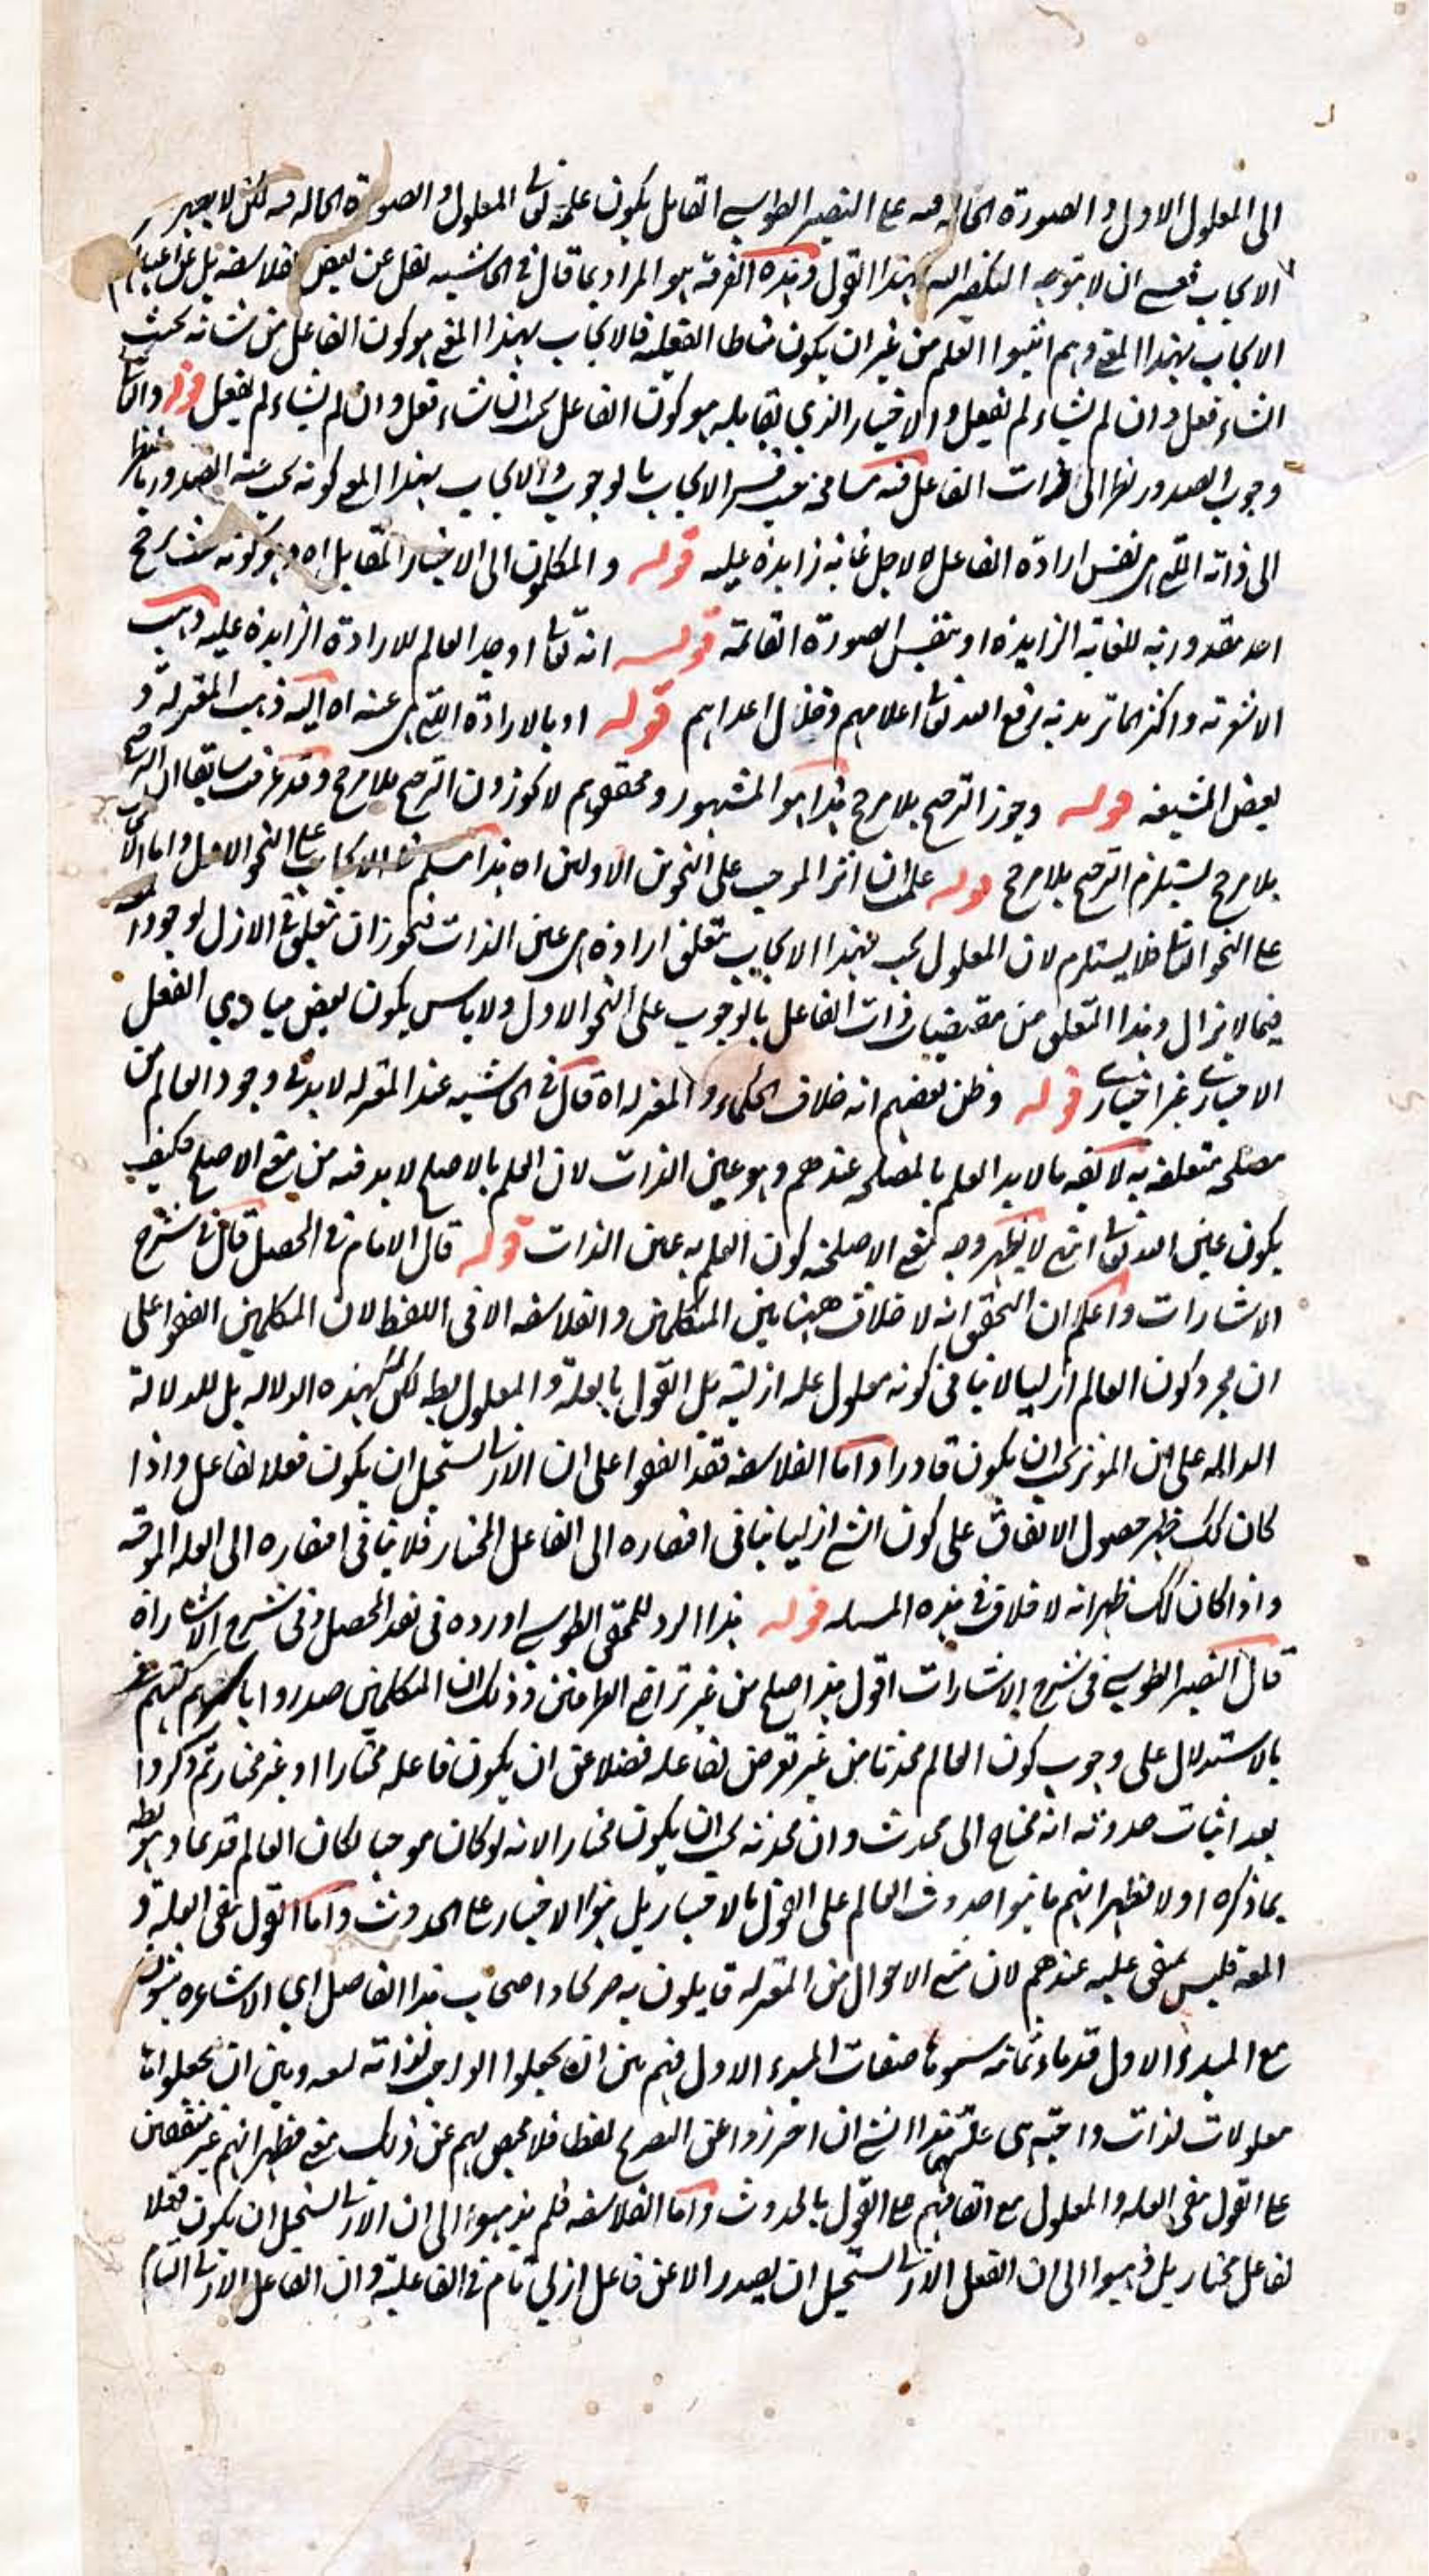 الى المعلول الاول و الصورة الحاله فيه على النصير الطوسي القايل بكون علمه تعالى المعلول و الصورة الحاله فيه لكن لا بعبير
الايجاب فعسى ان لا يتوجه التكفير اليه بهذا القول و هذه الفرقه هو المراد بما قال في الحاشيه نقل عن بعض الفلاسفه بل عن اعيانهم
الايجاب بهذا المعنى وهم اثبتوا العلم من غير ان يكون مناطا الفعليه فالايجاب بهذا المعنى هو كون الفاعل من شانه بحيث
انشاء فعل وان لم يشاء لم يفعل والاختيار الذي يقابله هو كون الفاعل بحيث ان شاء فعل وان لم يشاء لم يفعل قوله والثانى
وجوب الصدور نظرا الى ذات الفاعل فيه مسامحه حيث فسر الايجاب بالوجوب والايجاب بهذا المعنى كونه يجب عنه الصدور بالنظر
الى ذاته التى هى نفس ارادة الفاعل لا لاجل غاية زايدة عليه قوله و المتكلمون الى الاختيار المقابل اه وهو كونه بحيث يرجح
احد مقدوريه للغاية الزايدة او بنفس الصورة القائمة قوله انه تعالى اوجد العالم للارادة الزايدة عليه ذهب
الاشعريه واكثر الماتريديه رفع الله تعالى اعلامهم وخذل اعدائهم قوله او بالارادة التى هى عينه اه اليه ذهب المعتزله و
بعض الشيعه قوله وجوز الترجيح بلا مرجح هذا هو المشهور و محققوهم لا يجوزون الترجيح بلا مرجح وقد عرفت سابقا ان الترجيح
بلا مرجح يستلزم الترجح بلا مرجح قوله علمت ان اثر الموجب على النحوين الاولين اه هذا مسلم فى الايجاب على النحو الاول واما الايجاب
على النحو الثانى فلا يستلزم لان المعلول يجب بهذا الايجاب بتعلق ارادة هى عين الذات فيجوز ان يتعلق في الازل لوجود المعلول
فيما لا يزال وهذا التعلق من مقتضيات ذات الفاعل بالوجوب على النحو الاول ولا باس بكون بعض مبادي الفعل
الاختيارى غير اختيارى قوله وظن بعضهم انه خلاف الحكماء و المعتزله اه قال في الحاشيه عند المعتزله لابد في وجود العالم من
مصلحه متعلقه به لا كفه مالابد العلم بالمصلحه عندهم وهو عين الذات لان العلم بالاصلح لابد فيه من معنى الاصلح فكيف
يكون عين الله تعالى انتهى لا يظهر وجه لمنع الاصلحيه كون العلم به عين الذات قوله قال الامام في المحصل قال في شرح
الاشارات واعلم ان التحقق انه لا خلاف ههنا بين المتكلمين و الفلاسفه الا فى اللفظ لان المتكلمين اتفقوا على
ان مجرد كون العالم ازليا لا ينافى كونه معلول عله ازليته بل القول بالعلة و المعلول بط لكن لا بهذه الدلاله بل للدلالة
الداله على ان المؤثر يجب ان يكون قادرا و اما الفلاسفه فقد اتفقوا على ان الازلى يستحيل ان يكون فعلا لفاعل واذا
كان كك ظهر حصول الاتفاق على كون الشئ ازليا ينافى افتقاره الى الفاعل المختار فلا ينافى افتقاره الى العله الموجبه
واذا كان كك ظهر انه لا خلاف في هذه المسئله قوله هذا الرد للمحقق الطوسي اورده فى نقد المحصل وفى شرح الاشارات اه
قال النصير الطوسي فى شرح الاشارات اقول هذا صلح من غير تراضى الخصمين وذلك ان المتكلمين صدروا باسرهم كتبهم
بالاستدلال على وجوب كون العالم محدثا من غير تعرض لفاعله فضلا عن ان يكون فاعله مختارا او غير مختار ثم ذكروا
بعد اثبات حدوثه انه محتاج الى محدث و ان محدثه يجب ان يكون مختارا لانه لو كان موجبا لكان العالم قديما وهو بط
بما ذكره اولا فظهر انهم ما بنوا حدوث العالم على القول بالاختيار بل بنوا الاختيار على الحدوث و اما القول بنفى العله و
المعلول فليس بمتفق عليه عندهم لان مثبتى الاحوال من المعتزله قايلون به صريحا و اصحاب هذا الفاضل اي الاشاعره يثبتون
مع المبدء الاول قدماء ثمانيه سموها صفات المبدء الاول فهم بين ان يجعلوا الواجب لذاته تسعه وبين ان يجعلوها
معلولات لذات واجبه هى علتها وهذا الشئ ان احترزوا عن التصريح لفظا فلا محيص لهم عن ذلك معنى فظهر انهم غير متفقين
على القول بنفى العله والمعلول مع اتفاقهم على القول بالحدوث و اما الفلاسفه فلم يذهبوا الى ان الازلى يستحيل ان يكون فعلا
لفاعل مختار بل ذهبوا الى ان الفعل الازلى يستحيل ان يصدر الا عن فاعل ازلي تام فى الفاعليه و ان الفاعل الازلى التام